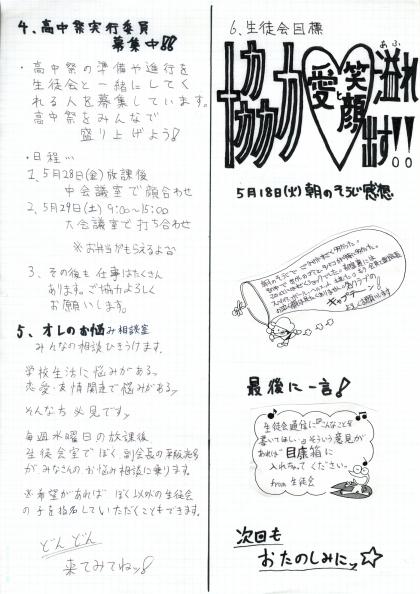 4、高中祭実行委員
募集中!!
・高中祭の準備や進行を
生徒会と一緒にしてく
れる人を募集しています。
高中祭をみんなで
盛り上げよう!
・日程…
1、5月28日(金)放課後
中会議室で顔合わせ
2、5月29日(土)9:00~15:00
大会議室で打ち合わせ
※お弁当がもらえるよ
3、その後も仕事はたくさん
あります。ご協力よろしく
お願いします。
5、オレのお悩み相談室
みんなの相談ひきうけます。
学校生活に悩みがあるッ
恋愛・友情関連で悩みがあるッ
そんな方必見ですッ
毎週水曜日の放課後
生徒会室でぼく副会長の
がみなさんのお悩み相談に乗ります。
※希望があれば ぼく以外の生徒会
の子を指名していただくこともできます。
どんどん
来てみてねッ!
6、生徒会目標
協力 愛と笑顔 溢れ出す!!
あふ
5月18日(火)朝のそうじ感想
キャプテーン!
最後に一言!
生徒会通信に『こんなことを
書いてほしい』そういう意見が
あれば目康箱に
入れちゃてください。
from 生徒会
次回も
おたのしみにッ☆